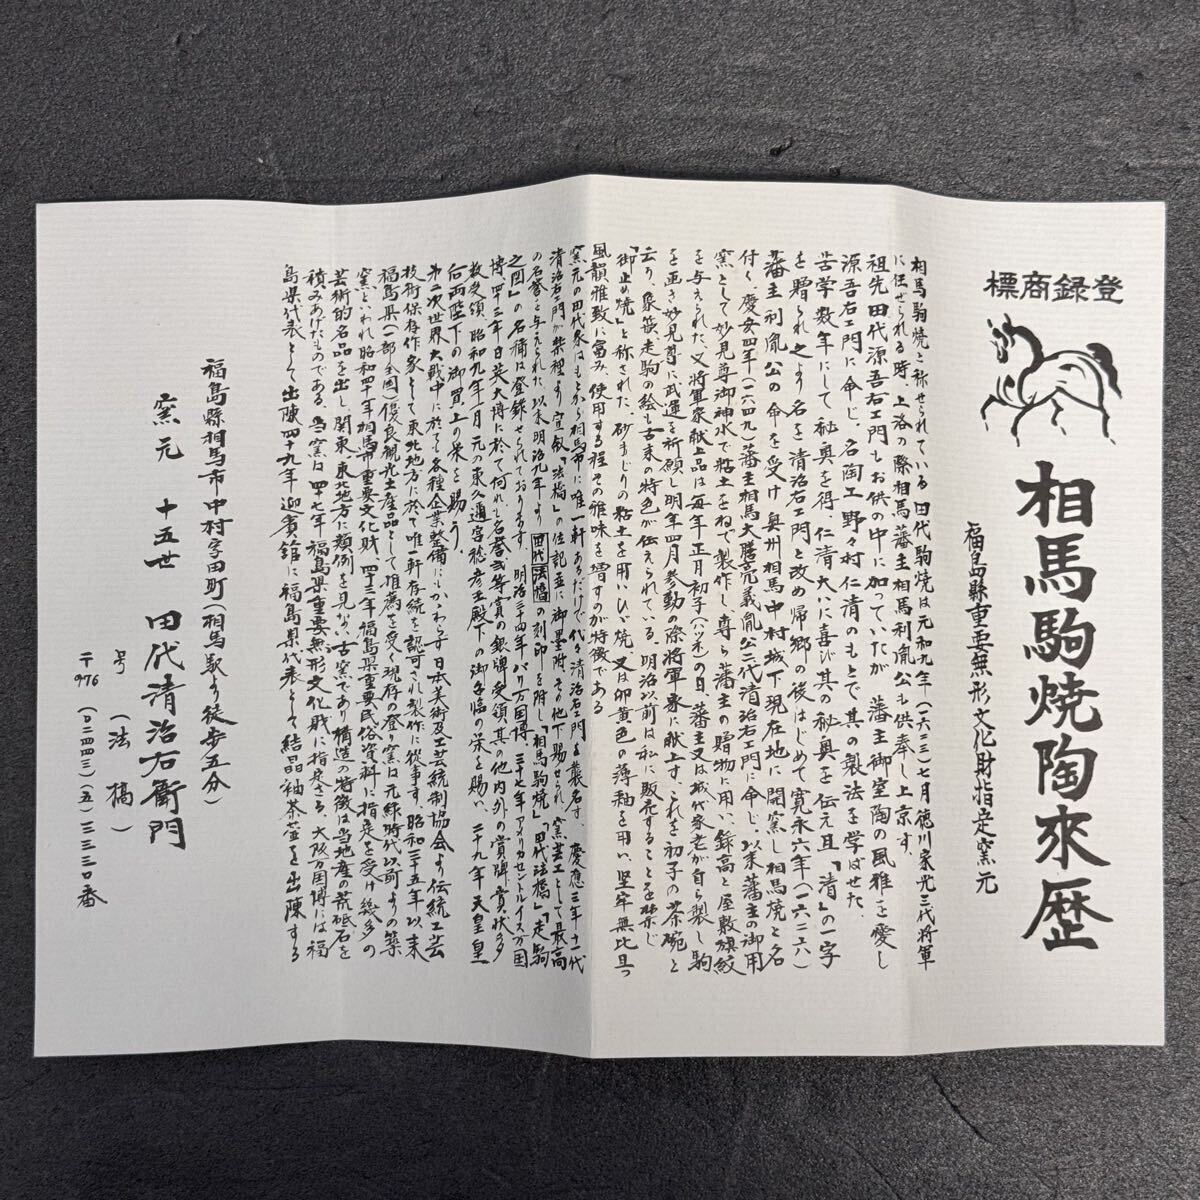 標商録登
相馬駒焼陶来歴
福島縣重要無形文化財指定窯元
相馬駒焼と称せられている田代駒焼は元和九年(一六二三)七月徳川家光三代将軍
に任ぜられる時、上洛の際相馬藩主相馬利胤公も供奉し上京す。
祖先田代源吾右ェ門もお供の中に加っていたが 藩主御室陶の風雅を愛し
源吾右ェ門に命じ、名陶工野々村仁清のもとで其の製法を学ばせた。
苦学数年にして秘奥を得、仁清大いに喜び其の秘奥を伝え且「清」の一字
を贈られ之より 名を清治右ェ門と改め帰郷の後はじめて寛永六年(一六二六)
藩主利胤公の命を受け奥州相馬中村城下現在地に開窯し相馬焼と名
付く、慶安四年(一六四九)藩主相馬大膳亮義胤公二代清治右ェ門に命じ、以来藩主の御用
窯として妙見尊御神水で粘土をねて製作し専ら藩主の贈物に用い録高と屋敷旗紋
を与えられた、又将軍家献上品は毎年正月初子(ハツネ)の日、藩主又は城代家老が自ら製し駒
を画き妙見尊に武運を祈願し明年四月参勤の際将軍家に献上す、これを初子の茶碗と
云り、象篏走駒の絵も古来の特色が伝えられている、明治以前は私に販売することを禁じ
「御止め焼」と称された、砂まじりの粘土を用いひび焼、又は卯黄色の薄釉を用い、堅牢無比且つ
風韻雅致に富み、使用する程その雅味を増すのが特徴である
窯元の田代家はもとから相馬市に唯一軒あるだけで代々清治右ェ門を襲名す、慶應三年十一代
清治右ェ門が禁裡より宣叙「法橋」の位記並に御墨附その他下賜せられ、窯芸工として最高
の名誉を与えられた、以来明治九年より田代法橋の刻印を附し「相馬駒焼」「田代法橋」「走駒
之図」の名稱は登録せられております。明治三十四年パリ万国博、三十七年アメリカセントルイス万国
博、四十三年日英大博に於て何れも名誉弐等賞の銀牌受領其の他内外の賞牌賞状多
数受領 昭和九年一月元の東久邇宮稔彦王殿下の御台臨の栄を賜い、二十九年天皇皇
后両陛下の御買上の栄を賜う。
第二次世界大戦中に於ても各種企業整備にかゝわらず日本美術及工芸統制協会より伝統工芸
技術保存作家として東北地方に於て唯一軒存続を認可され製作に従事す、昭和二十五年以来
福島県(一部全国)優良観光土産品として推薦を受く現存の登り窯は元録時代以前よりの築
窯といわれ昭和四十年相馬市重要文化財、四十三年福島県重要民俗資料に指定を受け幾多の
芸術的名品を出し関東、東北地方に類例を見ない古窯であり構造の特徴は当地産の荒砥石を
積みあげたものである。当窯は四十七年福島県重要無形文化財に指定さる、大阪万国博には福
島県代表として出陳四十九年迎賓館に福島県代表として結晶釉茶壷を出陳する
福島縣相馬市中村字田町(相馬駅より徒歩五分)
窯元 十五世 田代清治右衛門
号(法橋)
〒976 (〇二四四三)(五)三三三〇番